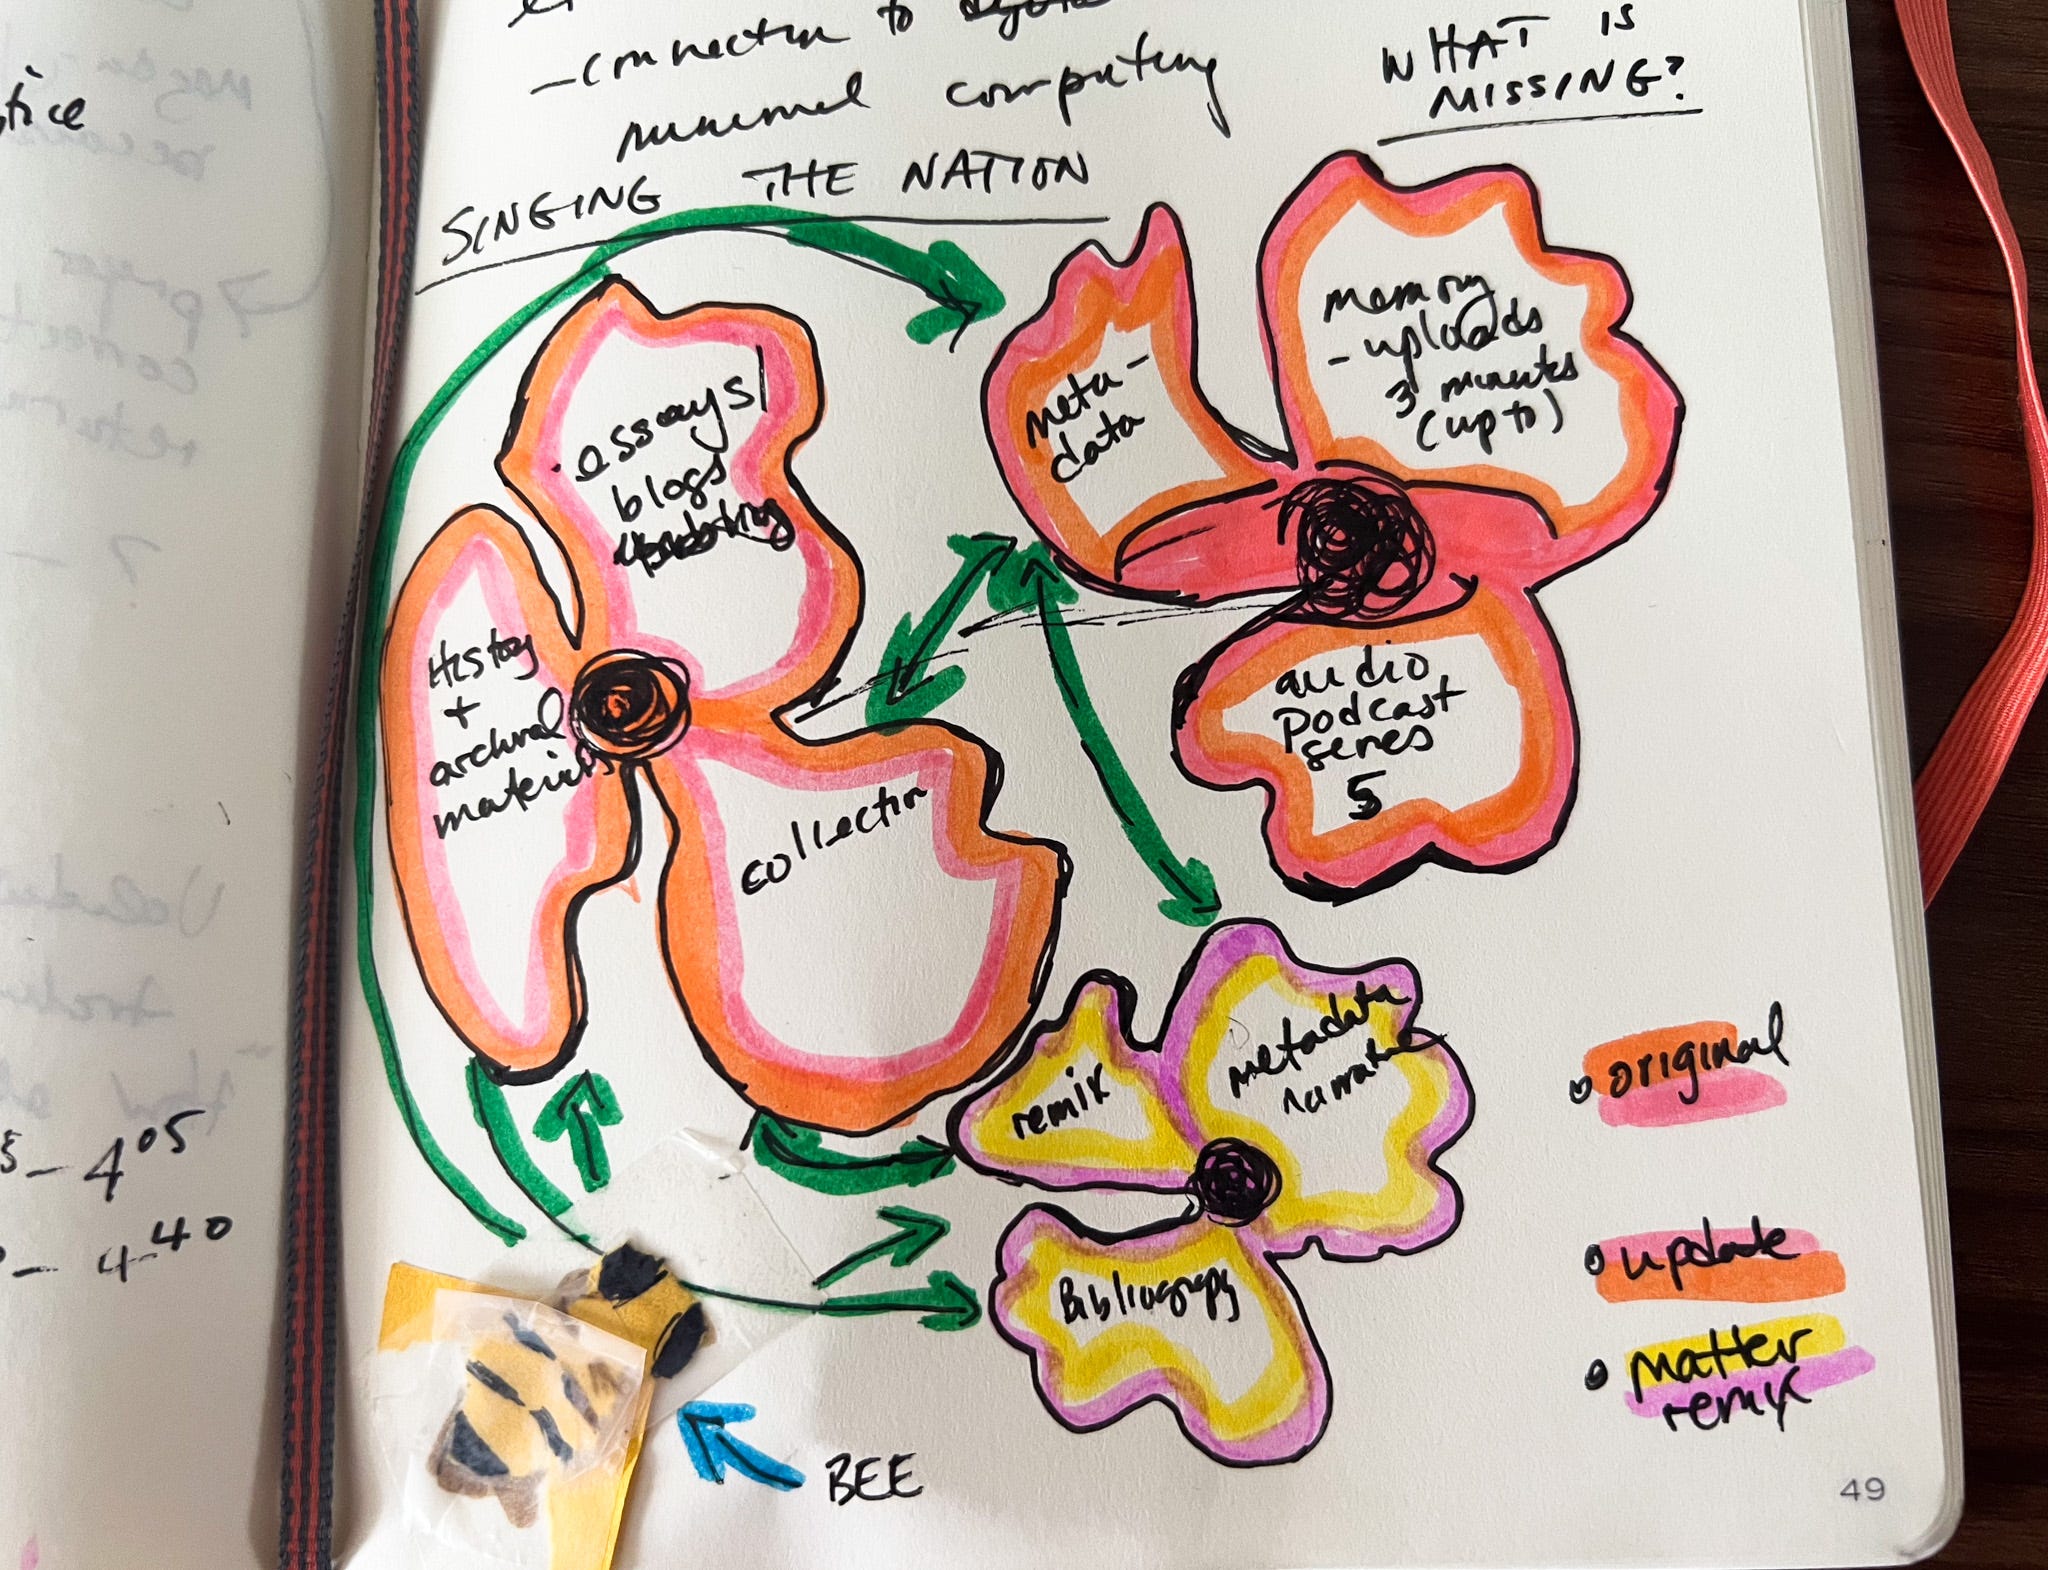 - connection to
minimal computing
WHAT IS
MISSING?
SINGING THE NATION
essays/
blogs
History
+
archival
materials
collection
meta-
data
memory
- uploads
3 minutes
(up to)
audio
podcast
series
5
remix
metadata
Bibliography
original
update
matter
remix
BEE
49
- 4 05
- 4 40